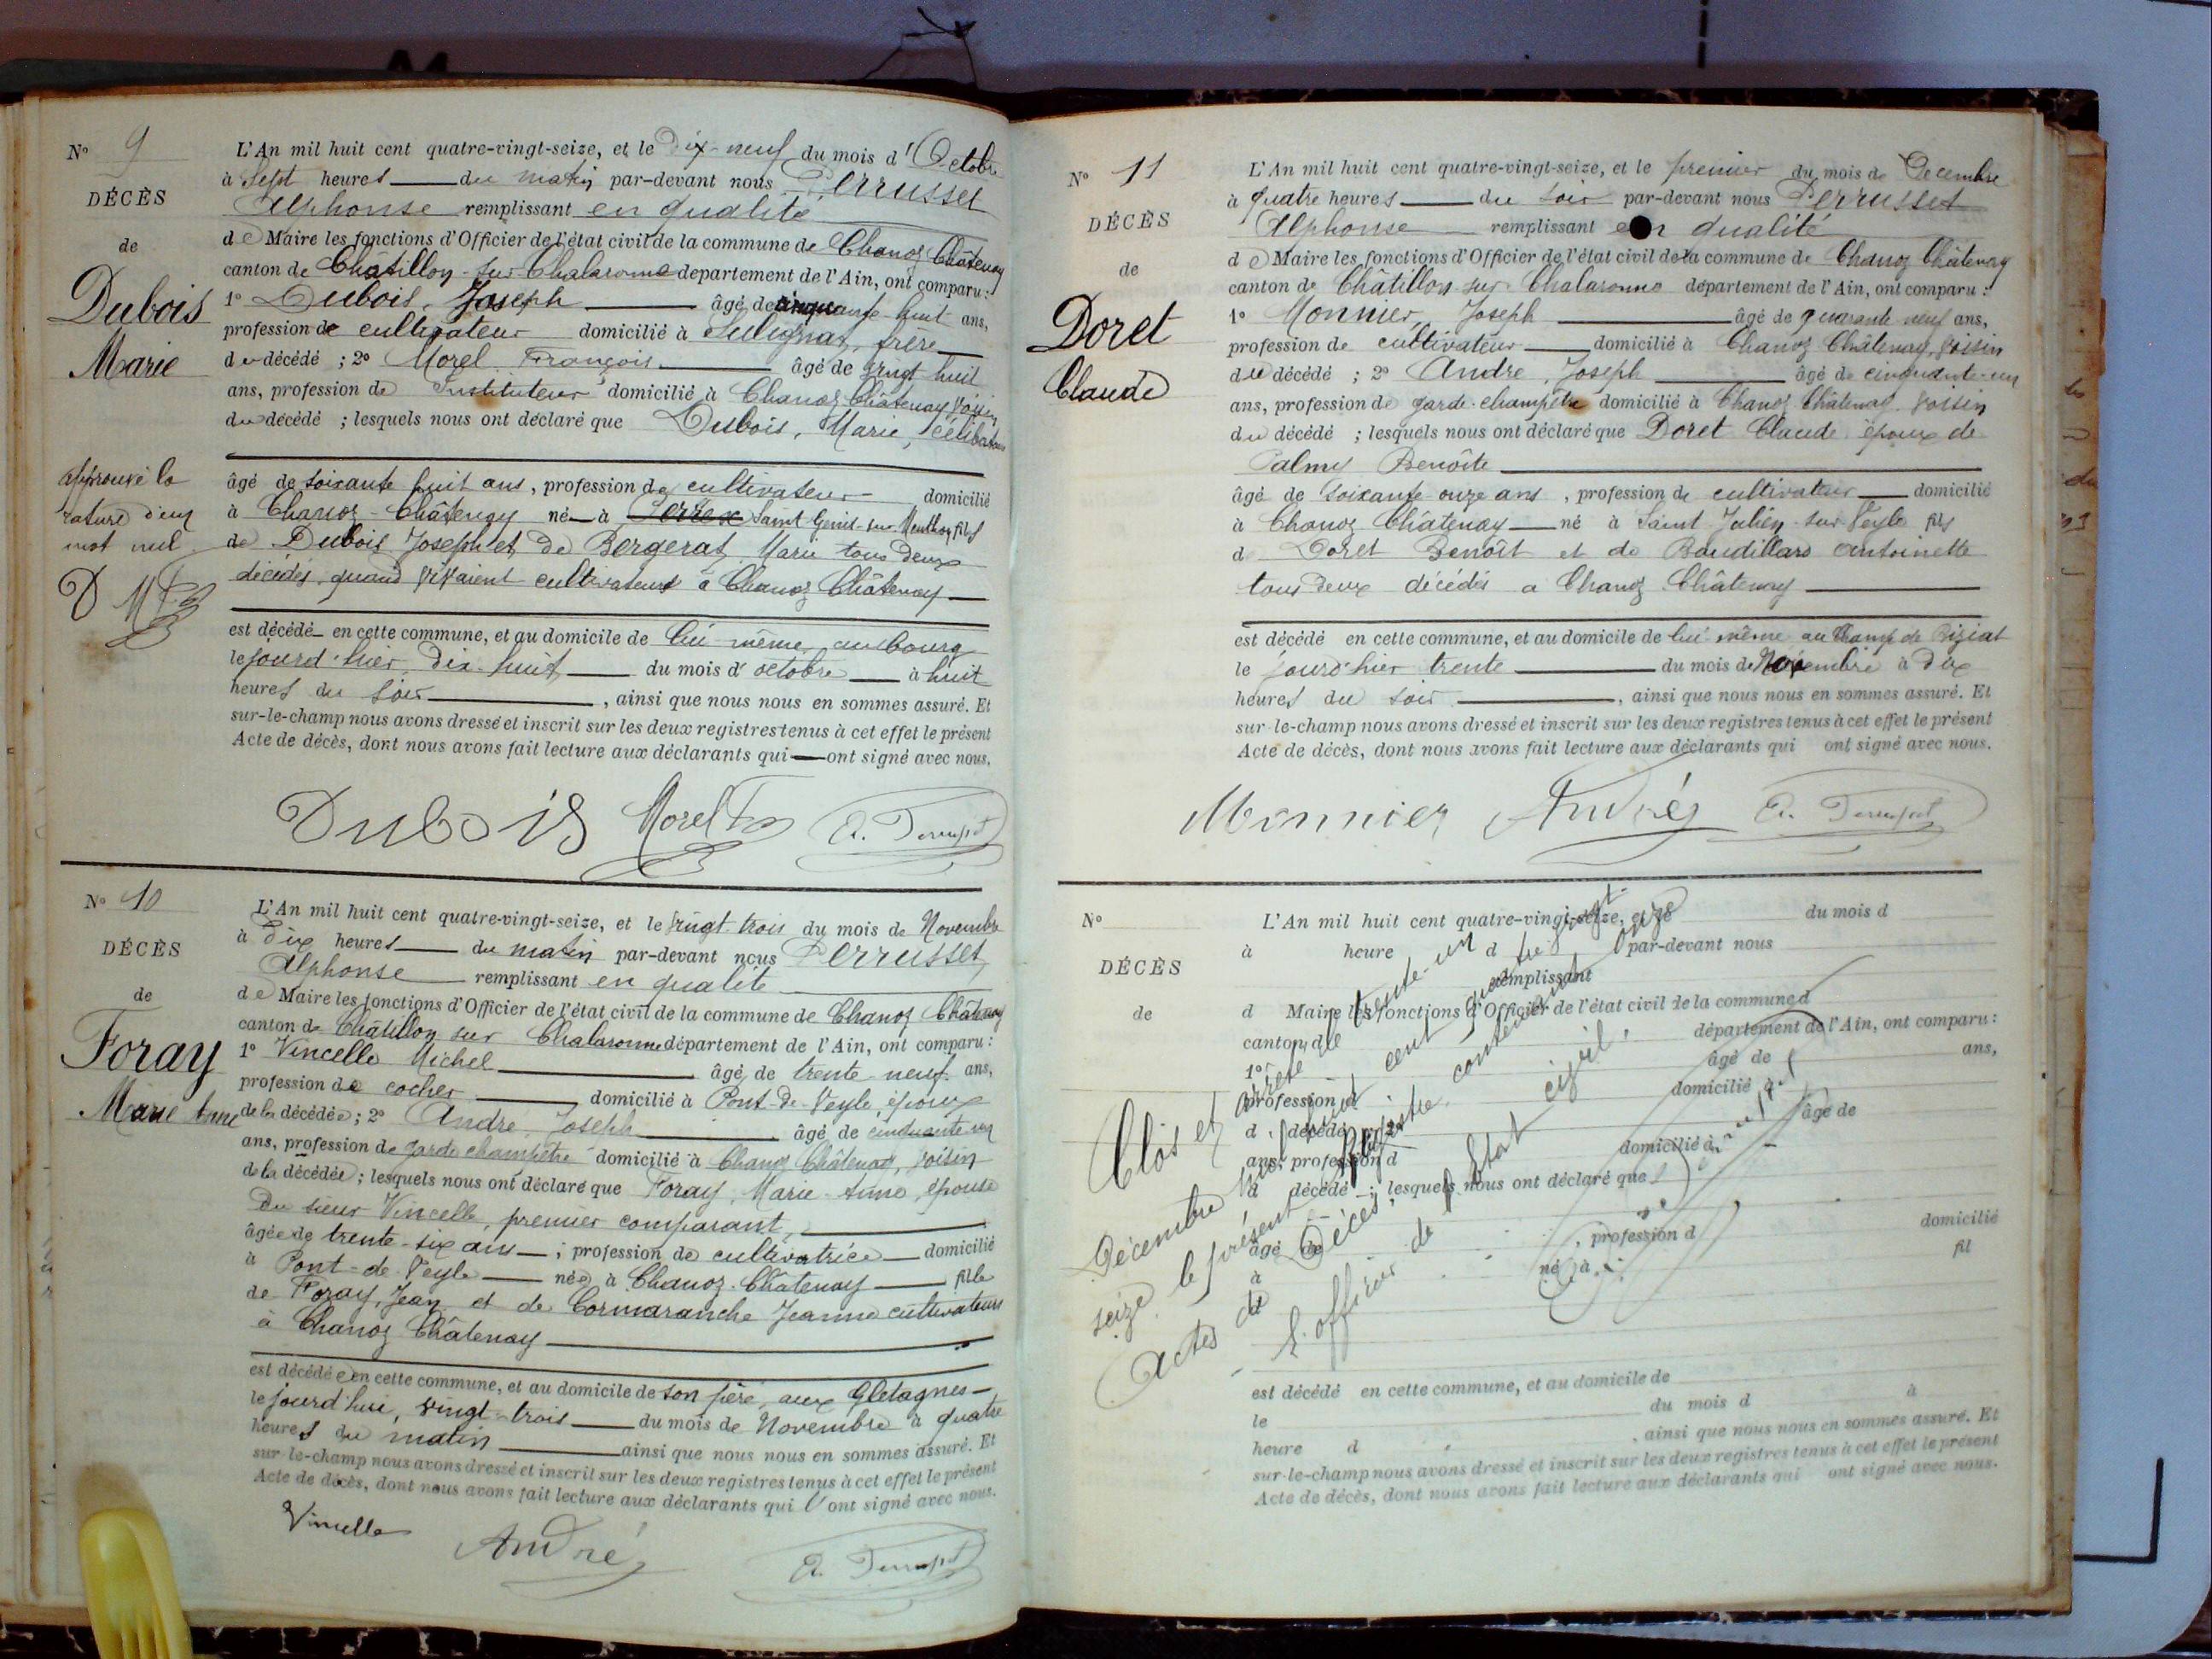 N° 9
DÉCÈS
de
Dubois
Marie
L'An mil huit cent quatre-vingt-seize, et le Dix-neuf du mois d'Octobre
à Sept heures du matin par-devant nous Perrusset
Alphonse remplissant en qualité
de Maire les fonctions d'Officier de l'état civil de la commune de Chanoz Châtenay
canton de Châtillon-sur-Chalaronne département de l'Ain, ont comparu:
1° Dubois, Joseph âgé de cinquante-huit ans,
profession de cultivateur domicilié à Sulignat, frère
du décédé ; 2° Morel François âgé de vingt huit
ans, profession de Instituteur domicilié à Chanoz-Châtenay Voisin
du décédé ; lesquels nous ont déclaré que Dubois, Marie, célibataire
âgé de soixante huit ans, profession de cultivateur domicilié
à Chanoz-Châtenay né à Perrex Saint Genis-sur-Menthon fils
de Dubois Joseph et de Bergerat Marie tous deux
décédés, quand vivaient cultivateurs à Chanoz Châtenay
approuvé la
rature d'un
mot nul
est décédé en cette commune, et au domicile de lui-même, au bourg
le jourd'hier, Dix-huit du mois d'octobre à huit
heures du soir, ainsi que nous nous en sommes assuré. Et
sur-le-champ nous avons dressé et inscrit sur les deux registres tenus à cet effet le présent
Acte de décès, dont nous avons fait lecture aux déclarants qui ont signé avec nous.
Dubois Morel F A. Perrusset
N° 10
DÉCÈS
de
Foray
Marie Anne
L'An mil huit cent quatre-vingt-seize, et le vingt-trois du mois de Novembre
à Dix heures du matin par-devant nous Perrusset
Alphonse remplissant en qualité
de Maire les fonctions d'Officier de l'état civil de la commune de Chanoz Châtenay
canton de Châtillon sur Chalaronne département de l'Ain, ont comparu:
1° Vincelle Michel âgé de trente-neuf ans,
profession de cocher domicilié à Pont-de-Veyle, époux
de la décédée; 2° André, Joseph âgé de cinquante un
ans, profession de garde champêtre domicilié à Chanoz Châtenay, voisin
de la décédée; lesquels nous ont déclaré que Foray, Marie-Anne, épouse
du sieur Vincelle, premier comparant,
âgée de trente-six ans; profession de cultivatrice domicilié
à Pont-de-Veyle née à Chanoz-Châtenay fille
de Foray, Jean et de Cormaranche Jeanne cultivateurs
à Chanoz Châtenay
est décédée en cette commune, et au domicile de son père, aux Gletagnes
le jourd'hui, vingt-trois du mois de Novembre à quatre
heures du matin ainsi que nous nous en sommes assuré. Et
sur-le-champ nous avons dressé et inscrit sur les deux registres tenus à cet effet le présent
Acte de décès, dont nous avons fait lecture aux déclarants qui ont signé avec nous.
Vincelle André A. Perrusset
N° 11
DÉCÈS
de
Doret
Claude
L'An mil huit cent quatre-vingt-seize, et le premier du mois de Décembre
à quatre heures du soir par-devant nous Perrusset
Alphonse remplissant en qualité
de Maire les fonctions d'Officier de l'état civil de la commune de Chanoz Châtenay
canton de Châtillon sur Chalaronne département de l'Ain, ont comparu:
1° Monnier, Joseph âgé de quarante neuf ans,
profession de cultivateur domicilié à Chanoz Châtenay, Voisin
du décédé ; 2° André, Joseph âgé de cinquante-un
ans, profession de garde-champêtre domicilié à Chanoz Châtenay, voisin
du décédé ; lesquels nous ont déclaré que Doret Claude époux de
Palmy Benoîte
âgé de soixante-onze ans, profession de cultivateur domicilié
à Chanoz Châtenay né à Saint Julien-sur-Veyle fils
de Doret Benoît et de Baudillard Antoinette
tous deux décédés à Chanoz Châtenay
est décédé en cette commune, et au domicile de lui-même au Champ de Biziat
le jourd'hier trente du mois de Novembre à dix
heures du soir, ainsi que nous nous en sommes assuré. Et
sur-le-champ nous avons dressé et inscrit sur les deux registres tenus à cet effet le présent
Acte de décès, dont nous avons fait lecture aux déclarants qui ont signé avec nous.
Monnier André A. Perrusset
N°
DÉCÈS
de
L'An mil huit cent quatre-vingt-seize, et le du mois d
à heure d par-devant nous
remplissant
d Maire les fonctions d'Officier de l'état civil de la commune d
canton de département de l'Ain, ont comparu:
1° âgé de ans,
profession d domicilié à
d décédé ; 2° âgé de
ans, profession d domicilié à
d décédé ; lesquels nous ont déclaré que
âgé de , profession d domicilié
à né à fil
de
est décédé en cette commune, et au domicile de
le du mois d à
heure d , ainsi que nous nous en sommes assuré. Et
sur-le-champ nous avons dressé et inscrit sur les deux registres tenus à cet effet le présent
Acte de décès, dont nous avons fait lecture aux déclarants qui ont signé avec nous.
Clos et arrêté le trente-un
Décembre mil huit cent quatre vingt
seize le présent Registre contenant onze
Actes de Décès.
L'officier de l'Etat civil,